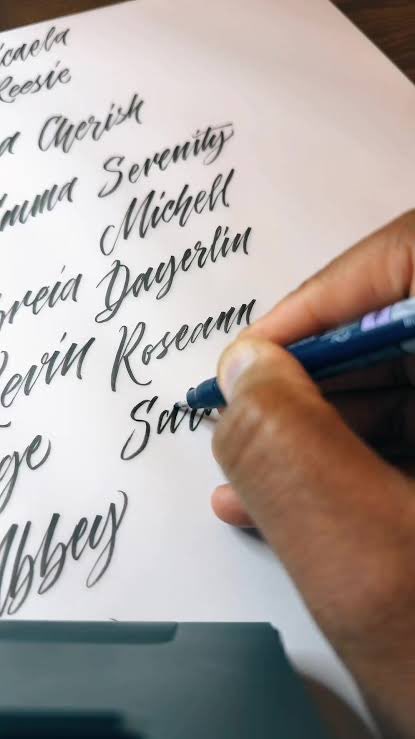 icaela
Reesie
a Cherish
mma Serenity
Michell
breia Dayerlin
Kevin Roseann
ge
Abbey